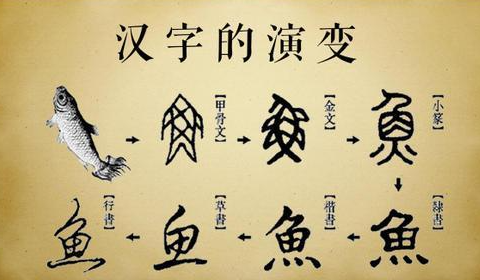 汉字的演变
【甲骨文】
【金文】
【小篆】
【隸書】
魚
【楷書】
魚
【草書】
鱼
【行書】
魚